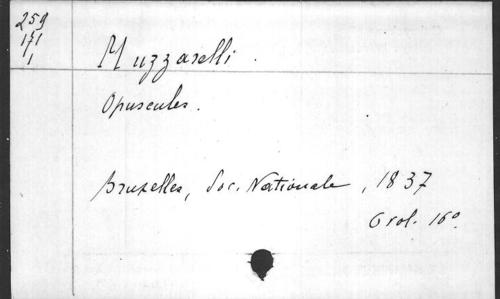 259
171
1
Muzzarelli.
Opuscules.
Bruxelles, Soc. Nationale, 1837
6 vol. 16°.